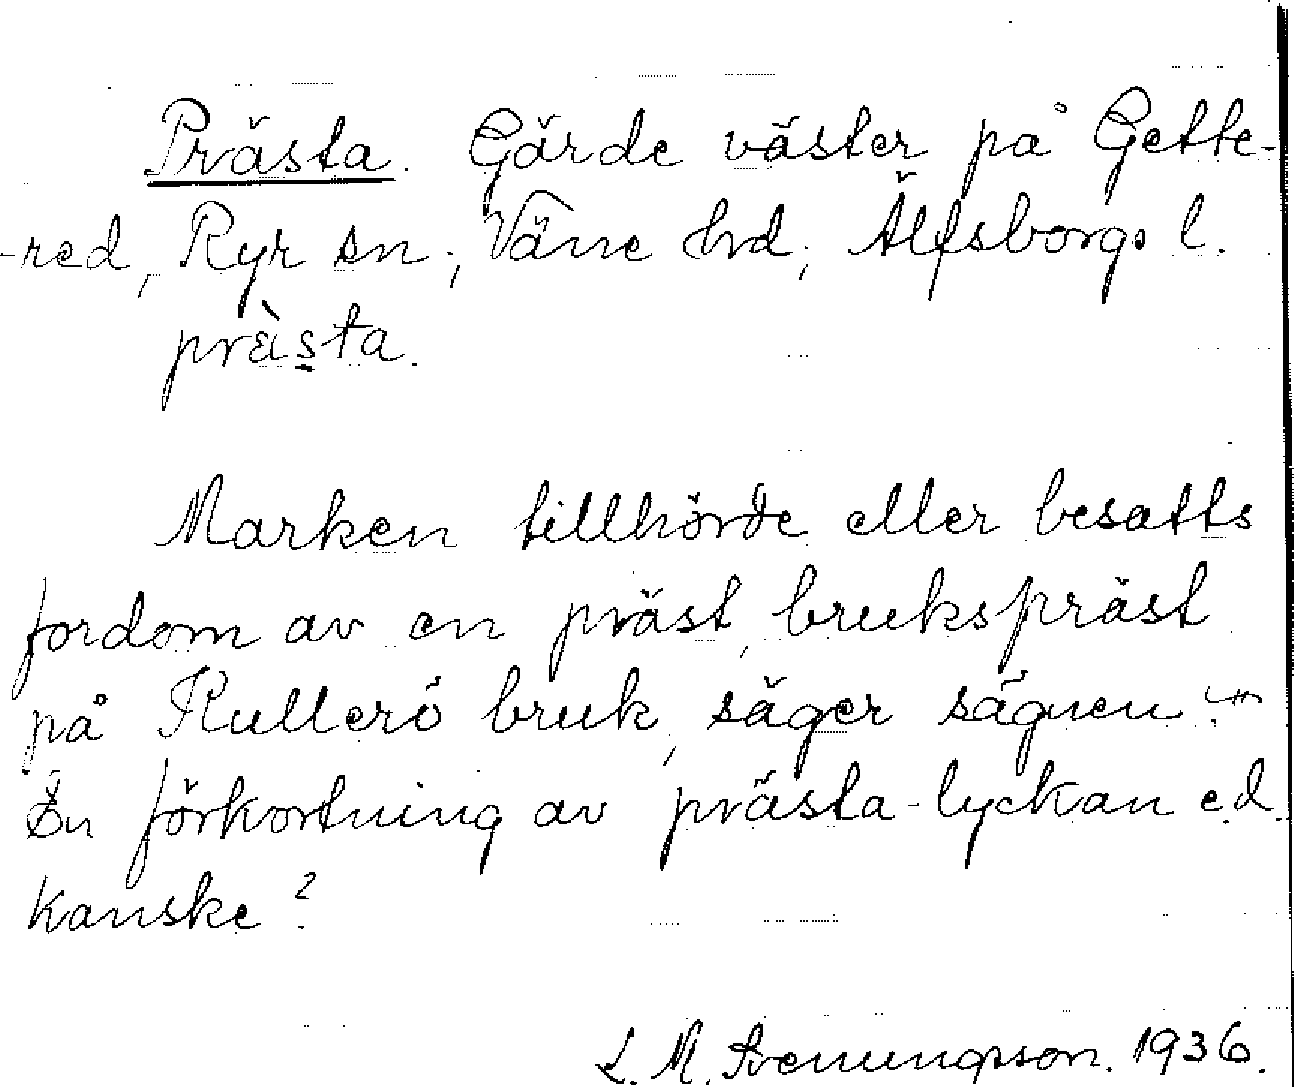 Prästa. Gärde väster på Gette-
-red, Ryr sn, Väne hd, Älfsborgs l.
präs̱ta.
Marken tillhörde eller besatts
fordom av en präst, brukspräst
på Rullerö bruk, säger sägnen.
En förkortning av prästa-lyckan e.d.
kanske?
L. M. Svenungsson. 1936.